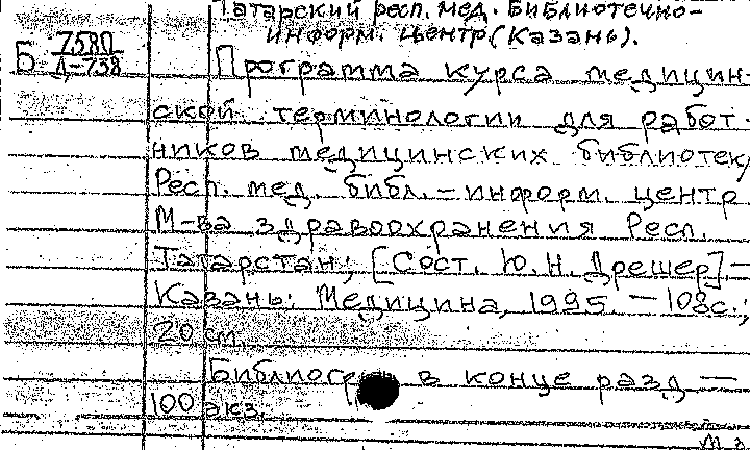 Татарский респ. мед. библиотечно-
информ. центр (Казань).
Б 7580
Д-738
Программа курса медицин-
ской терминологии для работ-
ников медицинских библиотек/
Респ. мед. библ.-информ. центр
М-ва здравоохранения Респ.
Татарстан; [Сост. Ю.Н. Дрешер].-
Казань: Медицина, 1995. - 108с.;
20 см.
Библиогр. в конце разд. -
100 экз.